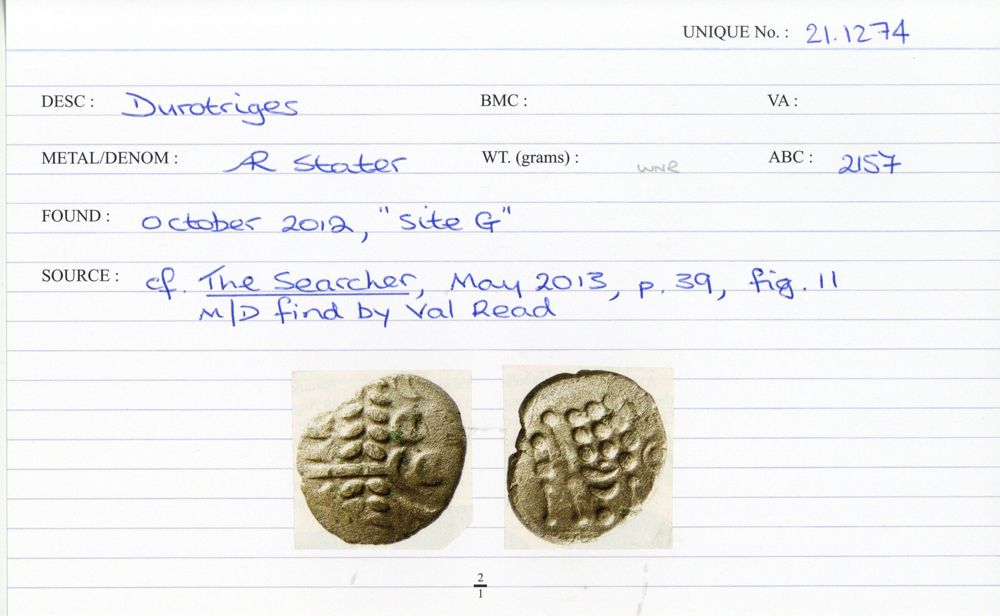 UNIQUE No. : 21.1274
DESC : Durotriges BMC : VA :
METAL/DENOM : AR Stater WT. (grams) : wnr ABC : 2157
FOUND : October 2012, "Site G"
SOURCE : cf. The Searcher, May 2013, p. 39, fig. 11
M/D find by Val Read
2
1